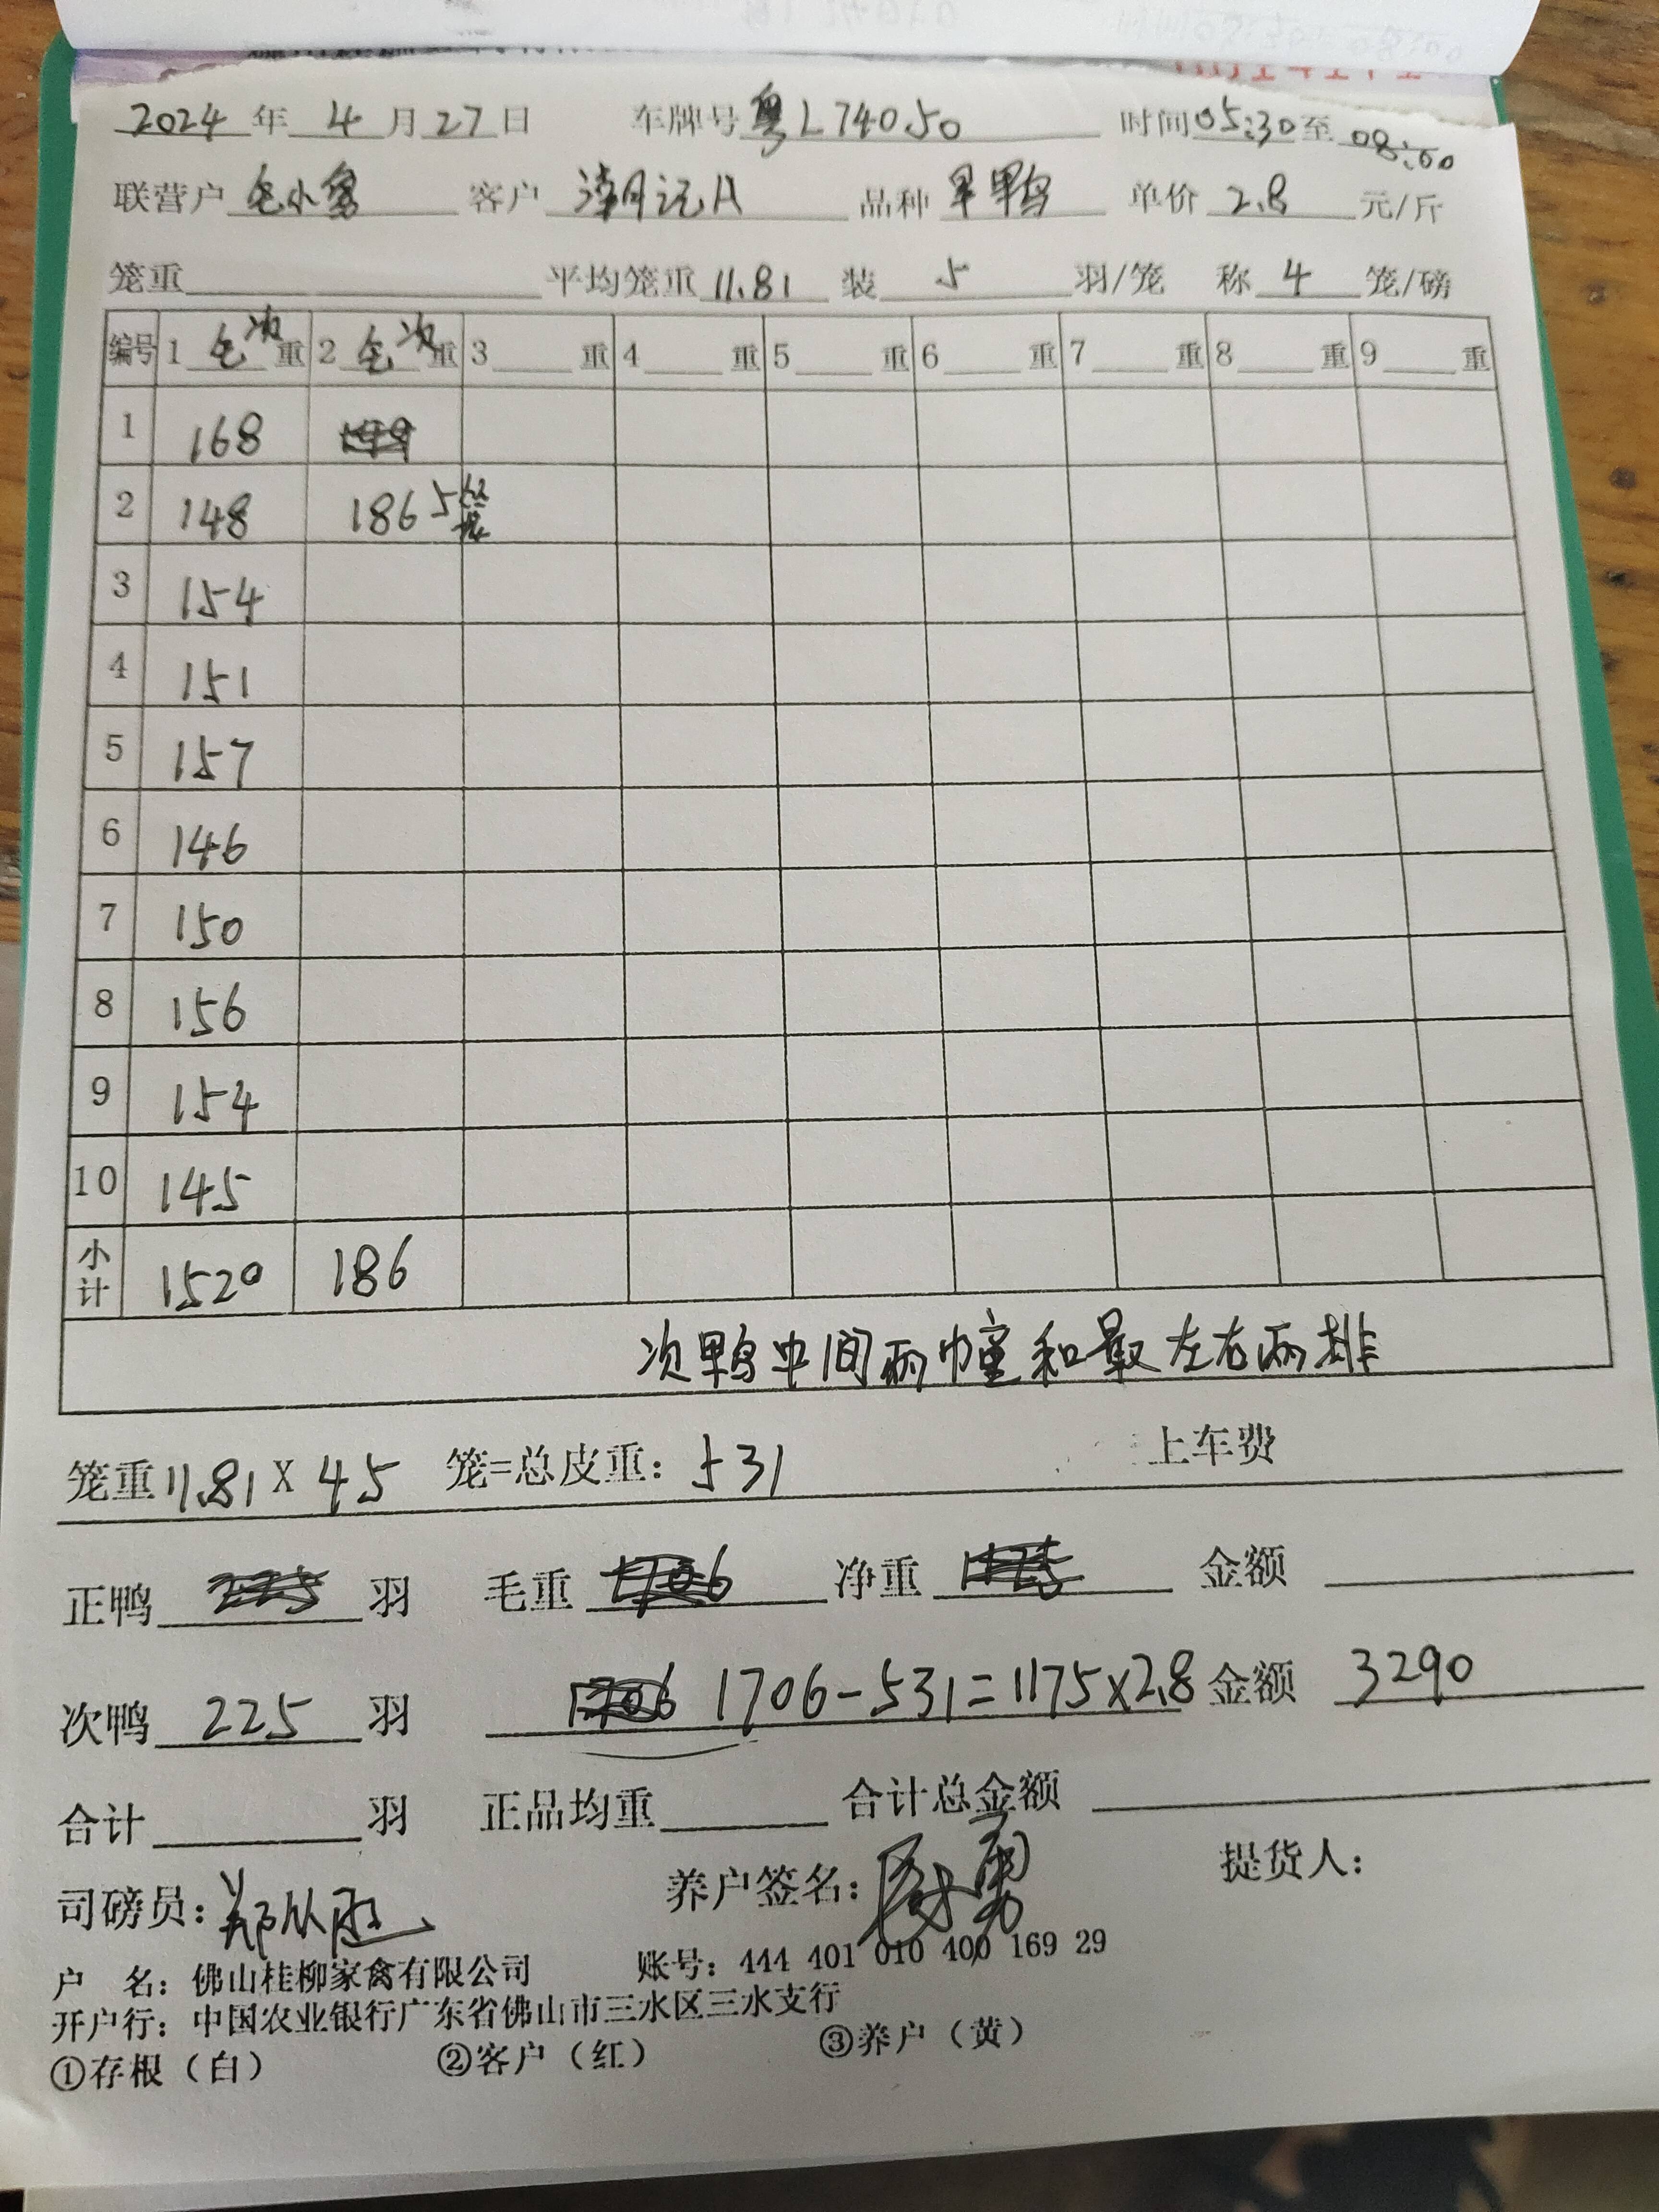 2024年4月27日 车牌号粤L74050 时间05:30至08:00
联营户 客户 记 品种 鸭 单价2.8元/斤
笼重 平均笼重11.81 装5羽/笼 称4笼/磅
编号 1 次重 2 次重 3 重 4 重 5 重 6 重 7 重 8 重 9 重
1 168
2 148 186 5
3 154
4 151
5 157
6 146
7 150
8 156
9 154
10 145
小计 1520 186
次鸭中间两幢和最左右两排
笼重11.81X45 笼=总皮重：531 上车费
正鸭225羽 毛重1706 净重1175 金额
次鸭225羽 1706 1706-531=1175×2.8 金额3290
合计 羽 正品均重 合计总金额
司磅员： 养户签名： 提货人：
户 名：佛山桂柳家禽有限公司 账号：444 401 010 400 169 29
开户行：中国农业银行广东省佛山市三水区三水支行
①存根（白） ②客户（红） ③养户（黄）